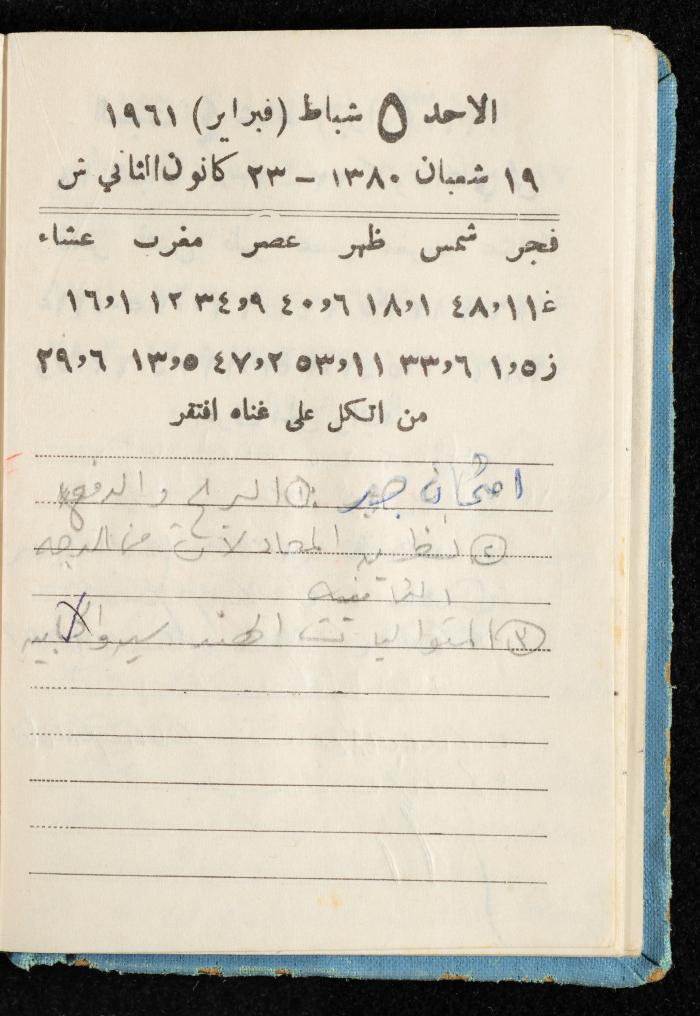 الاحد ٥ شباط (فبراير) ١٩٦١
١٩ شعبان ١٣٨٠ – ٢٣ كانون الثاني ش
فجر شمس ظهر عصر مغرب عشاء
غ ١١،٤٨ ١،١٨ ٦،٤٠ ٩،٣٤ ١٢ ١،١٦
ز ٥،١ ٦،٣٣ ١١،٥٣ ٢،٤٧ ٥،١٣ ٦،٢٩
من اتكل على غناه افتقر
امتحان جبر : ① الربح و الدفع
② نظرية المعادلات من الدرجه
الثانيه
③ المتواليات الهندسيه والحسابيه